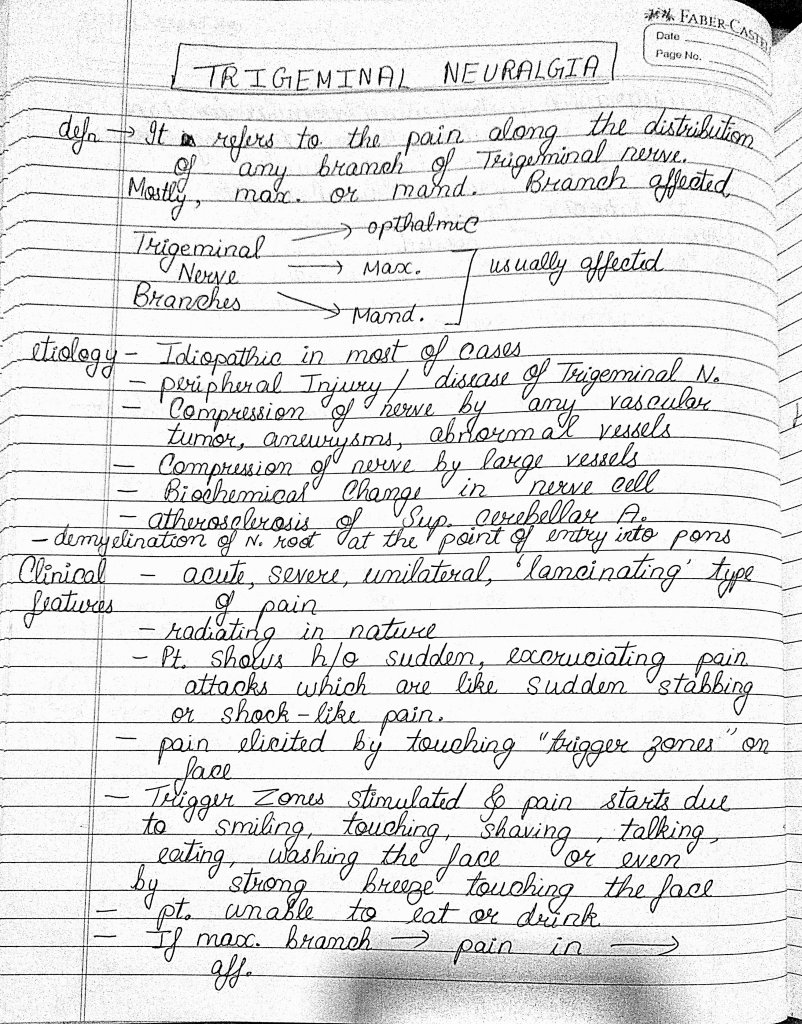 FABER-CASTEL
Date
Page No.
TRIGEMINAL NEURALGIA
defn → It refers to the pain along the distribution
of any branch of Trigeminal nerve.
Mostly, max. or mand. Branch affected
Trigeminal Nerve Branches → opthalmic
→ Max.
→ Mand.
usually affected
etiology - Idiopathic in most of cases
- peripheral Injury / disease of Trigeminal N.
- Compression of nerve by any vascular
tumor, aneurysms, abnormal vessels
- Compression of nerve by large vessels
- Biochemical Change in nerve cell
- atherosclerosis of Sup. cerebellar A.
- demyelination of N. root at the point of entry into pons
Clinical features - acute, severe, unilateral, 'lancinating' type
of pain
- radiating in nature
- Pt. shows h/o sudden, excruciating pain
attacks which are like sudden stabbing
or shock-like pain.
- pain elicited by touching "trigger zones" on
face
- Trigger Zones stimulated & pain starts due
to smiling, touching, shaving, talking,
eating, washing the face or even
by strong breeze touching the face
- pt. unable to eat or drink
- If max. branch → pain in →
aff.